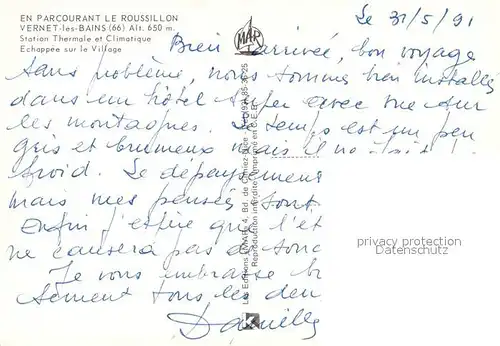 EN PARCOURANT LE ROUSSILLON
VERNET-les-BAINS (66) Alt. 650 m.
Station Thermale et Climatique
Echappée sur le Village
MAR
Le 31/5/91
Bien arrivée, bon voyage
sans problème, nous sommes bien installés
dans un hôtel super avec vue sur
les montagnes. Le temps est un peu
gris et brumeux mais il
froid. Le dépaysement
mais mes pensées sont
Enfin j'espère que l'ét
ne causera pas de souc
Je vous embrasse bi
sement tous les deu
Danielle
Les Editions "MAR", 4, Bd. de Cimiez-Nice
Reproduction interdite
privacy protection
watermark for our customers